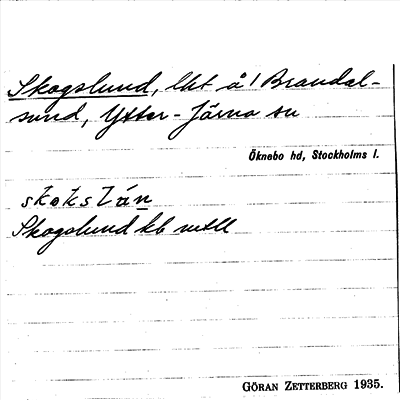 Skogslund, lht å Brandal-
sund, Ytter-Järna sn
Öknebo hd, Stockholms l.
Skogslund kb
GÖRAN ZETTERBERG 1935.